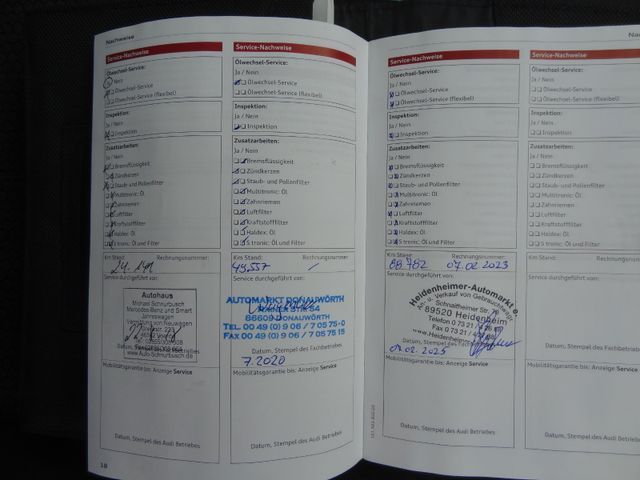 Nachweise
Service-Nachweise
Ölwechsel-Service:
Ja / Nein
Ölwechsel-Service
Ölwechsel-Service (flexibel)
Inspektion:
Ja / Nein
Inspektion
Zusatzarbeiten:
Ja / Nein
Bremsflüssigkeit
Zündkerzen
Staub- und Pollenfilter
Multitronic: Öl
Zahnriemen
Luftfilter
Kraftstofffilter
Haldex: Öl
S tronic: Öl und Filter
Km Stand: Rechnungsnummer:
Service durchgeführt von:
Autohaus
Michael Schnurbusch
Mercedes-Benz und Smart
Jahreswagen
Vermittlung von Neuwagen
www.Auto-Schnurbusch.de
Mobilitätsgarantie bis: Anzeige Service
Datum, Stempel des Audi Betriebes
18
Service-Nachweise
Ölwechsel-Service:
Ja / Nein
Ölwechsel-Service
Ölwechsel-Service (flexibel)
Inspektion:
Ja / Nein
Inspektion
Zusatzarbeiten:
Ja / Nein
Bremsflüssigkeit
Zündkerzen
Staub- und Pollenfilter
Multitronic: Öl
Zahnriemen
Luftfilter
Kraftstofffilter
Haldex: Öl
S tronic: Öl und Filter
Km Stand: Rechnungsnummer:
43.557 /
Service durchgeführt von:
AUTOMARKT DONAUWÖRTH
86609 DONAUWÖRTH
TEL. 00 49 (0) 9 06 / 7 05 75-0
FAX 00 49 (0) 9 06 / 7 05 75 15
Datum, Stempel des Fachbetriebes
7.2020
Mobilitätsgarantie bis: Anzeige Service
Datum, Stempel des Audi Betriebes
Service-Nachweise
Ölwechsel-Service:
Ja / Nein
Ölwechsel-Service
Ölwechsel-Service (flexibel)
Inspektion:
Ja / Nein
Inspektion
Zusatzarbeiten:
Ja / Nein
Bremsflüssigkeit
Zündkerzen
Staub- und Pollenfilter
Multitronic: Öl
Zahnriemen
Luftfilter
Kraftstofffilter
Haldex: Öl
S tronic: Öl und Filter
Km Stand: Rechnungsnummer:
88.782 07.02.2023
Service durchgeführt von:
Heidenheimer-Automarkt
An- u. Verkauf von Gebrauchtwagen
Schnaitheimer Str.
89520 Heidenheim
Telefon 0 73 21 /
Fax 0 73 21 /
www.Heidenheimer-
Datum, Stempel des Fachbetriebes
Mobilitätsgarantie bis: Anzeige Service
Datum, Stempel des Audi Betriebes
Service-Nachweise
Ölwechsel-Service:
Ja / Nein
Ölwechsel-Service
Ölwechsel-Service (flexibel)
Inspektion:
Ja / Nein
Inspektion
Zusatzarbeiten:
Ja / Nein
Bremsflüssigkeit
Zündkerzen
Staub- und Pollenfilter
Multitronic: Öl
Zahnriemen
Luftfilter
Kraftstofffilter
Haldex: Öl
S tronic: Öl und Filter
Km Stand: Rechnungsnummer:
Service durchgeführt von:
Datum, Stempel des Fachbetriebes
Mobilitätsgarantie bis: Anzeige Service
Datum, Stempel des Audi Betriebes